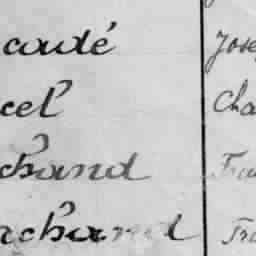 coudé Jose
cel Cha
chand Fra
rchand Fra